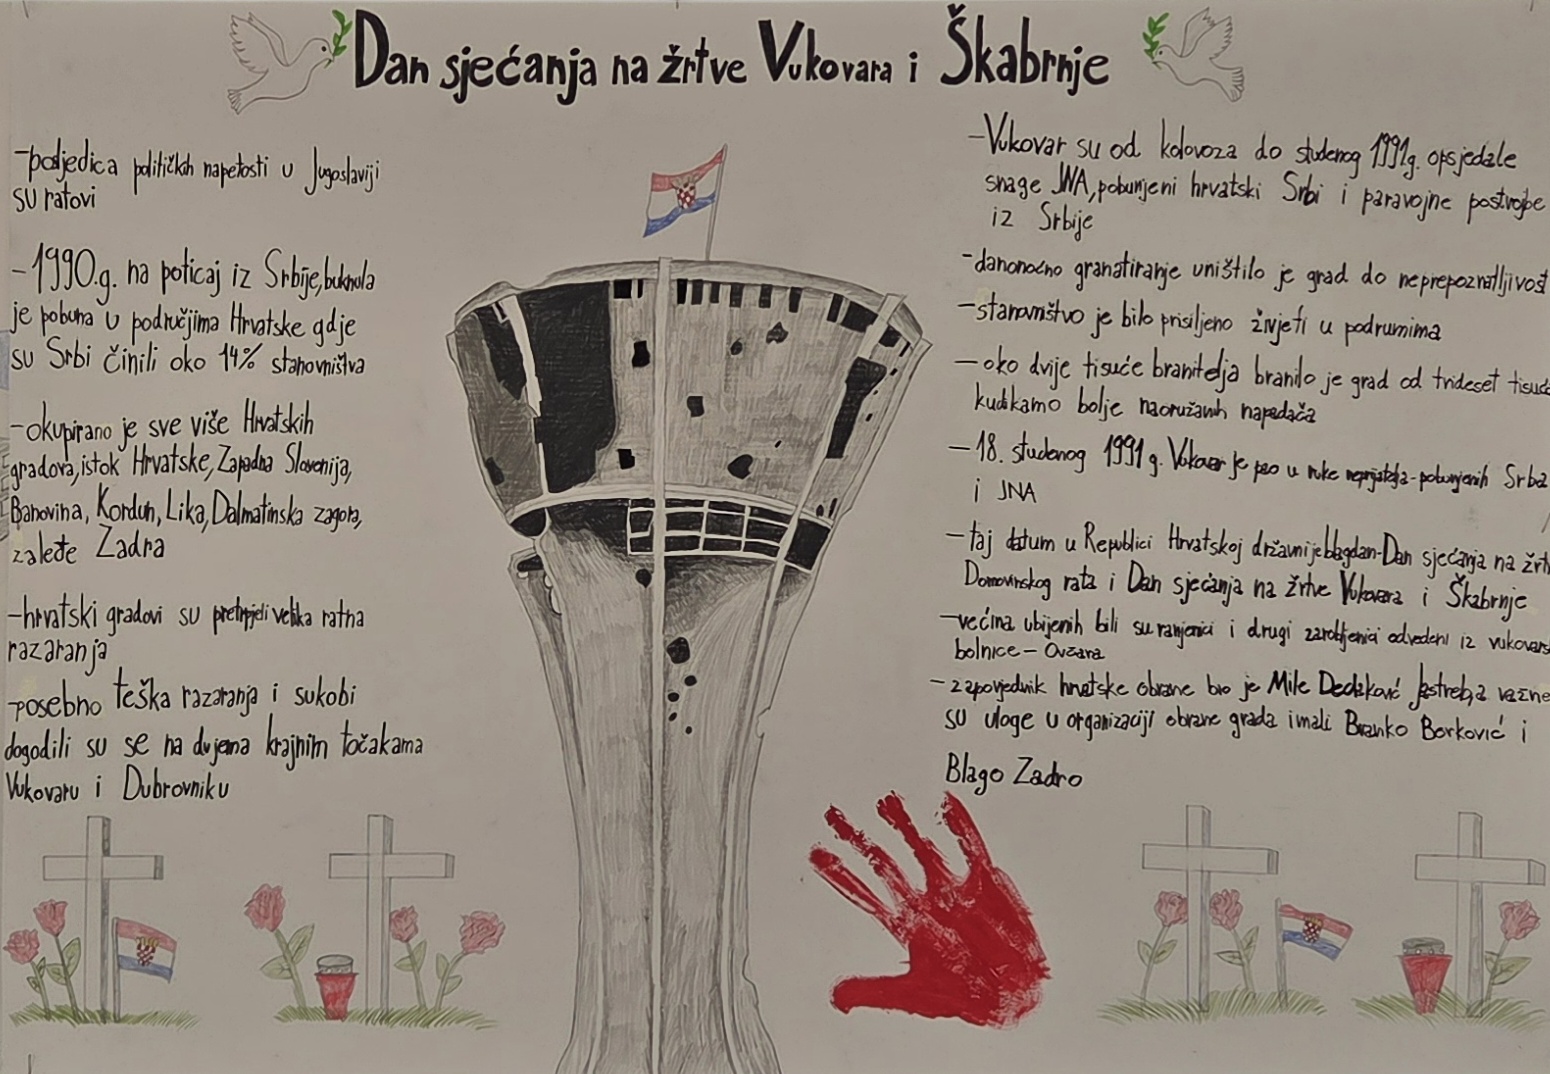 Dan sjećanja na žrtve Vukovara i Škabrnje
-posljedica političkih napetosti u Jugoslaviji
su ratovi
-1990.g. na poticaj iz Srbije, buknula
je pobuna u područjima Hrvatske gdje
su Srbi činili oko 14% stanovništva
-okupirano je sve više Hrvatskih
gradova, istok Hrvatske, Zapadna Slavonija,
Banovina, Kordun, Lika, Dalmatinska zagora,
zaleđe Zadra
-hrvatski gradovi su pretrpjeli velika ratna
razaranja
-posebno teška razaranja i sukobi
dogodili su se na dvjema krajnim točakama
Vukovaru i Dubrovniku
-Vukovar su od kolovoza do studenog 1991g. opsjedale
snage JNA, pobunjeni hrvatski Srbi i paravojne postrojbe
iz Srbije
-danonoćno granatiranje uništilo je grad do neprepoznatljivost
-stanovništvo je bilo prisiljeno živjeti u podrumima
-oko dvije tisuće branitelja branilo je grad od trideset tisuća
kudikamo bolje naoružanih napadača
-18. studenog 1991g. Vukovar je pao u ruke neprijatelja-pobunjenih Srba
i JNA
-taj datum u Republici Hrvatskoj državni je blagdan-Dan sjećanja na žrtv
Domovinskog rata i Dan sjećanja na žrtve Vukovara i Škabrnje
-većina ubijenih bili su ranjenici i drugi zarobljenici odvedeni iz vukovars
bolnice - Ovčara
-zapovjednik hrvatske obrane bio je Mile Dedaković Jastreb, a važne
su uloge u organizaciji obrane grada imali Branko Borković i
Blago Zadro